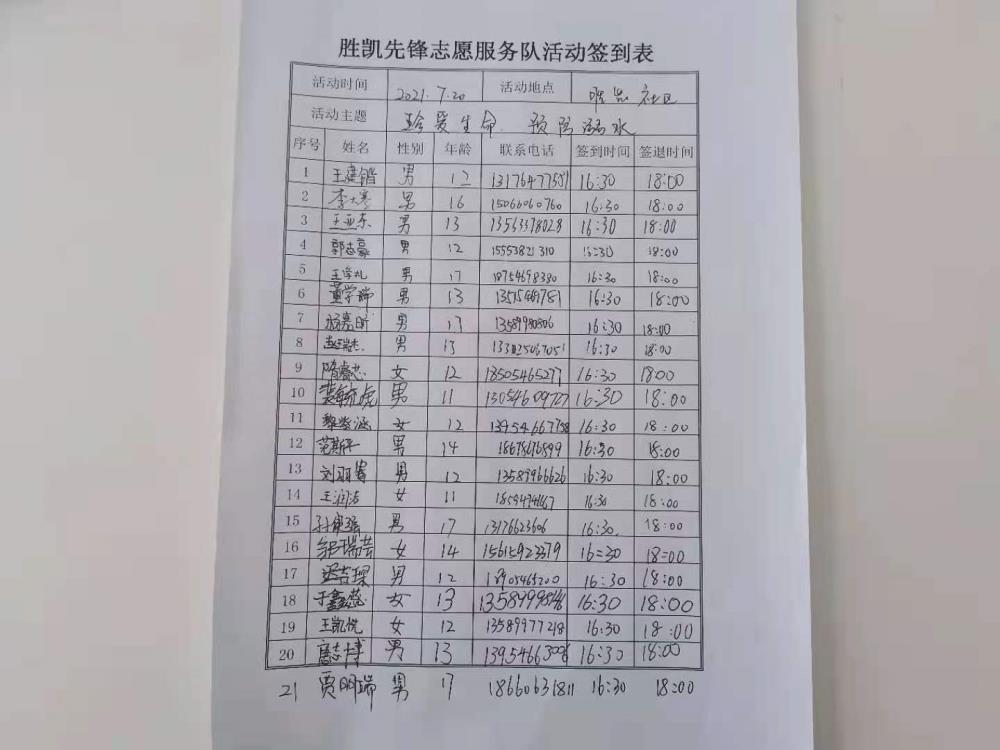 胜凯先锋志愿服务队活动签到表
活动时间 2021.7.20 活动地点 社区
活动主题 珍爱生命 预防溺水
序号 姓名 性别 年龄 联系电话 签到时间 签退时间
1 王建锴 男 12 16:30 18:00
2 李大寒 男 16 15066060760 16:30 18:00
3 王亚东 男 13 13563378028 16:30 18:00
4 郭志豪 男 12 15553821310 16:30 18:00
5 王学礼 男 17 18754678380 16:30 18:00
6 董学瑞 男 13 16:30 18:00
7 杨嘉昕 男 13589980806 16:30 18:00
8 男 13 16:30 18:00
9 隋睿芯 女 12 18505465277 16:30 18:00
10 男 11 13054609727 16:30 18:00
11 女 12 16:30 18:00
12 范斯平 男 14 18678676899 16:30 18:00
13 刘羽赛 男 12 13589966626 16:30 18:00
14 王润洁 女 11 16:30 18:00
15 孙康强 男 17 13176623606 16:30. 18:00
16 女 14 15615923379 16=30 18=00
17 男 12 16:30 18:00
18 于鑫蕊 女 13 16:30 18:00
19 王凯悦 女 12 13589977218 16:30 18:00
20 唐志博 男 13 16:30 18:00
21 贾明瑞 男 17 18660631811 16:30 18:00